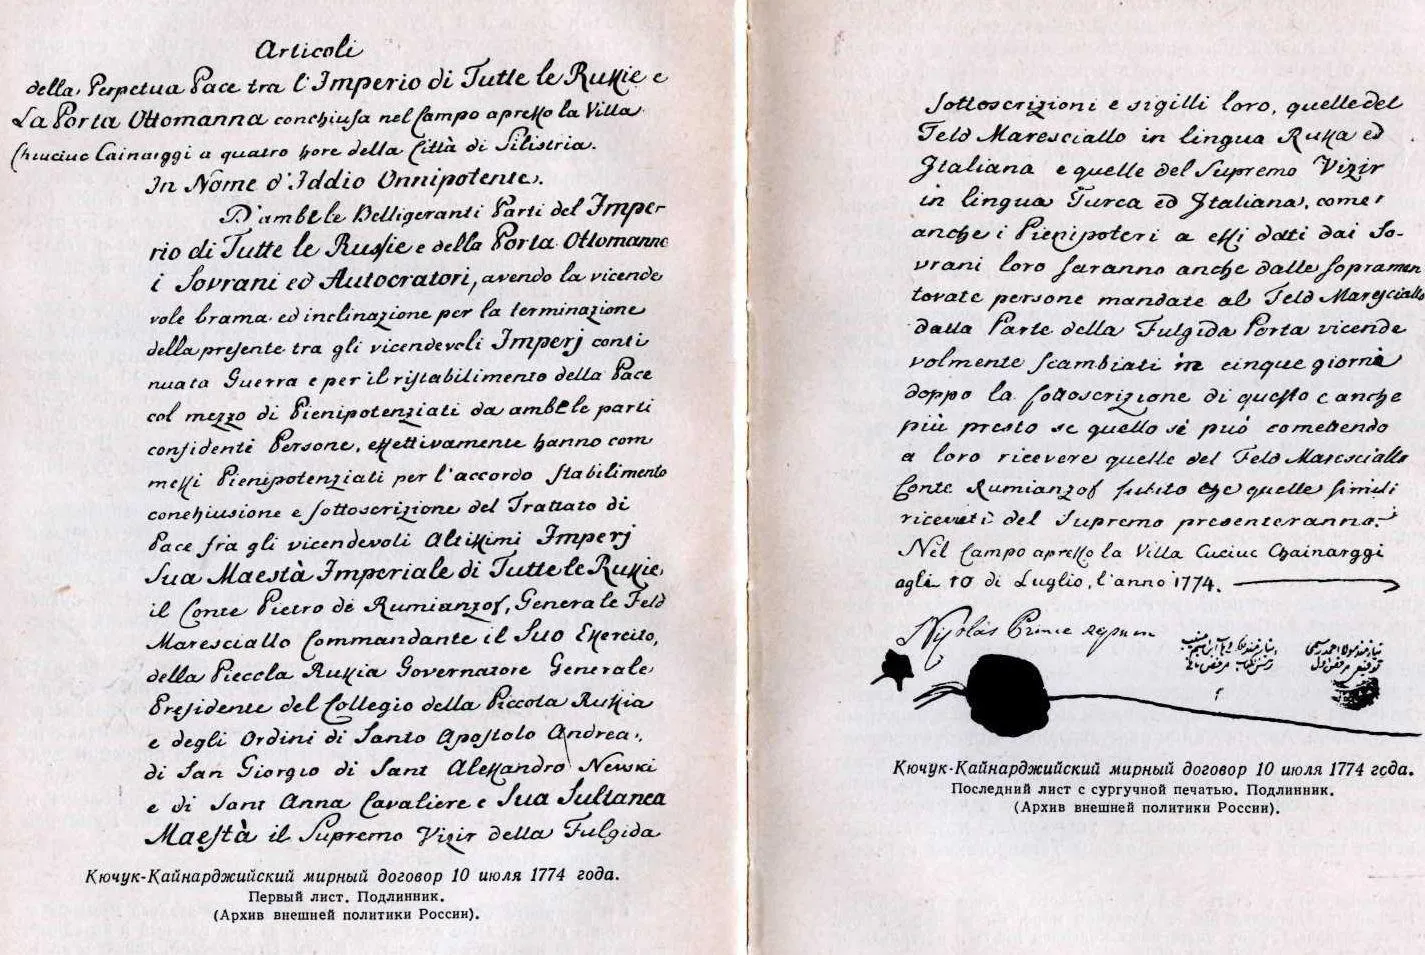 Articoli
della Perpetua Pace tra l'Imperio di Tutte le Russie e
La Porta Ottomanna conchiusa nel Campo apresso la Villa
Chiuciuc Cainarggi a quatro hore della Città di Silistria.
In Nome d'Iddio Onnipotente.
D'ambele Belligeranti Parti del Imper-
rio di Tutte le Russie e della Porta Ottomanna
i Sovrani ed Autocratori, avendo la vicende
vole brama ed inclinazione per la terminazione
della presente tra gli vicendevoli Imperj conti
nuata Guerra e per il ristabilimento della Pace
col mezzo di Plenipotenziati da ambele parti
confidenti Persone, effettivamente hanno com
messi Plenipotenziati per l'accordo stabilimento
conchiusione e sottoscrizione del Trattato di
Pace fra gli vicendevoli Altissimi Imperj
Sua Maestà Imperiale di Tutte le Russie
il Conte Pietro de Rumianzof, Generale Feld
Maresciallo Commandante il Suo Essercito,
della Piccola Russia Governatore Generale
Presidente del Collegio della Piccola Russia
e degli Ordini di Santo Apostolo Andrea,
di San Giorgio di Sant Alessandro Newski
e di Sant Anna Cavaliere e Sua Sultanea
Maestà il Supremo Vizir della Fulgida
Кючук-Кайнарджийский мирный договор 10 июля 1774 года.
Первый лист. Подлинник.
(Архив внешней политики России).
sottoscrizioni e sigilli loro, quelle del
Feld Maresciallo in lingua Russa ed
Italiana e quelle del Supremo Vizir
in lingua Turca ed Italiana, come
anche i Plenipoteri a essi dati dai So-
vrani loro saranno anche dalle sopramen
tovate persone mandate al Feld Maresciallo
dalla Parte della Fulgida Porta vicende
volmente scambiati in cinque giorni
doppo la sottoscrizione di questo e anche
più presto se quello si può comettendo
a loro ricevere quelle del Feld Maresciallo
Conte Rumianzof subito che quelle simili
ricevuti del Supremo presenteranno.
Nel Campo apresso la Villa Cuciuc Chainarggi
agli 10 di Luglio, l'anno 1774.
Nicolas Prince Repnin
Кючук-Кайнарджийский мирный договор 10 июля 1774 года.
Последний лист с сургучной печатью. Подлинник.
(Архив внешней политики России).